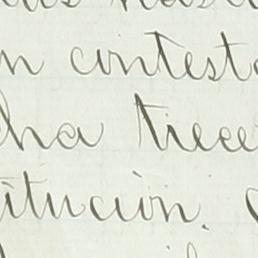 n contest
ha trece
itución.